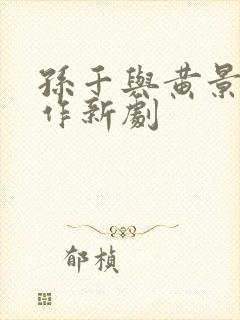 孫于與黃景
作新劇
郁楨